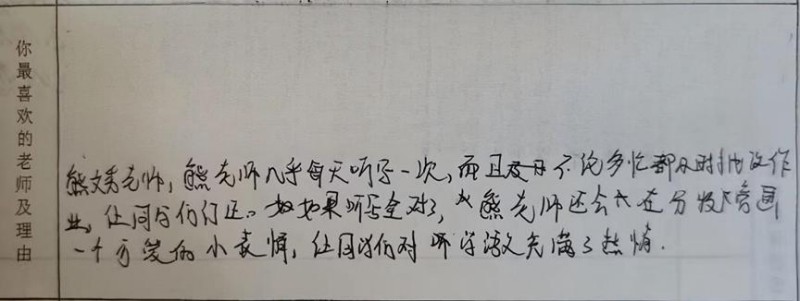 你最喜欢的老师及理由
熊文秀老师,熊老师几乎每天听写一次,而且不论多忙都及时批改作
业,让同学们订正。如果听写全对了,熊老师还会在分数旁画
一个可爱的小表情,让同学们对听写激充满了热情.